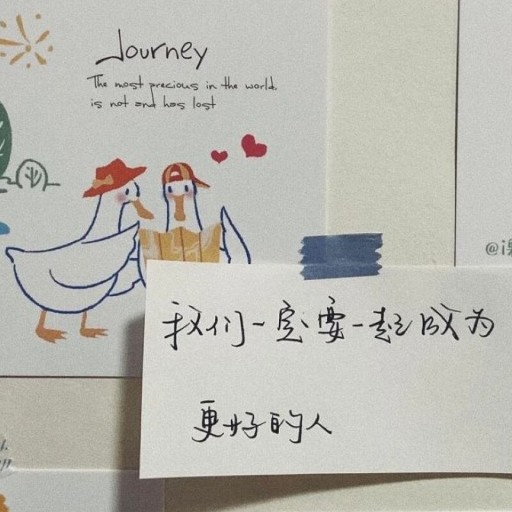 Journey
The most precious in the world.
is not and has lost
@i
我们一定要一起成为
更好的人